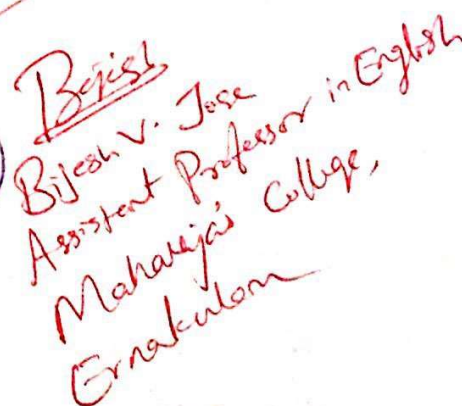 Bijesh
Bijesh V. Jose
Assistant Professor in English
Maharaja's College,
Ernakulam